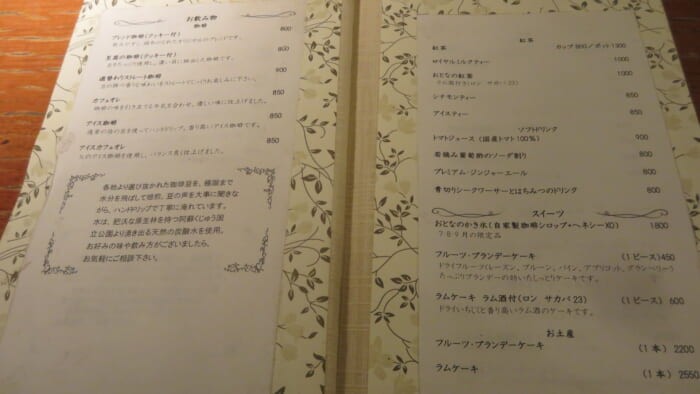 お飲み物
珈琲
ブレンド珈琲(クッキー付) 800
至高の珈琲(クッキー付) 800
週替わりストレート珈琲 900
カフェオレ 850
珈琲の味を引き立てる牛乳を合わせ、優しい味に仕上げました。
アイス珈琲 850
アイスカフェオレ 850
各地より選び抜かれた珈琲豆を、極限まで
水分を飛ばして焙煎、豆の声を大事に聞き
ながら、ハンドドリップで丁寧に淹れています。
水は、肥沃な原生林を持つ阿蘇くじゅう国
立公園より湧き出る天然の炭酸水を使用。
お好みの味や飲み方がございましたら、
お気軽にご相談下さい。
紅茶
紅茶 カップ900/ポット1300
ロイヤルミルクティー 1000
おとなの紅茶 1000
ラム酒付き(ロン サカパ23)
シナモンティー 850
アイスティー 850
ソフトドリンク
トマトジュース (国産トマト100%) 900
若摘み葡萄酢のソーダ割り 800
プレミアム・ジンジャーエール 800
青切りシークワーサーとはちみつのドリンク 800
スイーツ
おとなのかき氷(自家製珈琲シロップ・ヘネシーXO) 1800
7・8・9月の限定品
フルーツ・ブランデーケーキ (1ピース)450
ドライフルーツ(レーズン、プルーン、パイン、アプリコット、クランベリー)
たっぷりブランデーの効いたしっとりケーキです。
ラムケーキ ラム酒付(ロン サカパ23) (1ピース) 600
ドライいちじくと香り高いラム酒のケーキです。
お土産
フルーツ・ブランデーケーキ (1本) 2200
ラムケーキ (1本) 2550